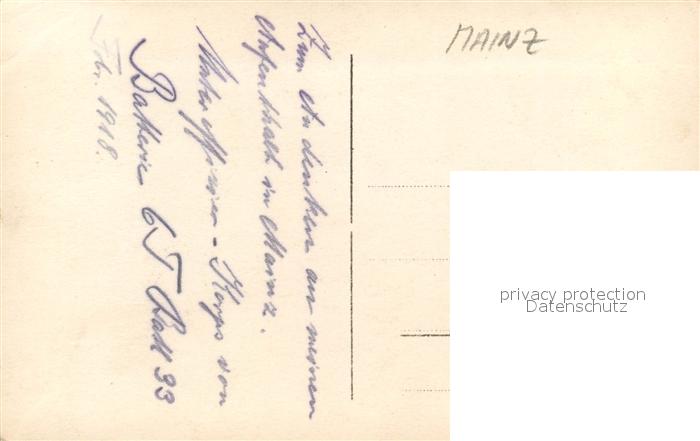 MAINZ
Zum Andenken an meinen
Aufenthalt in Mainz.
Unteroffizier-Korps von
Batterie 6 T 33
Febr. 1918.
privacy protection
Datenschutz